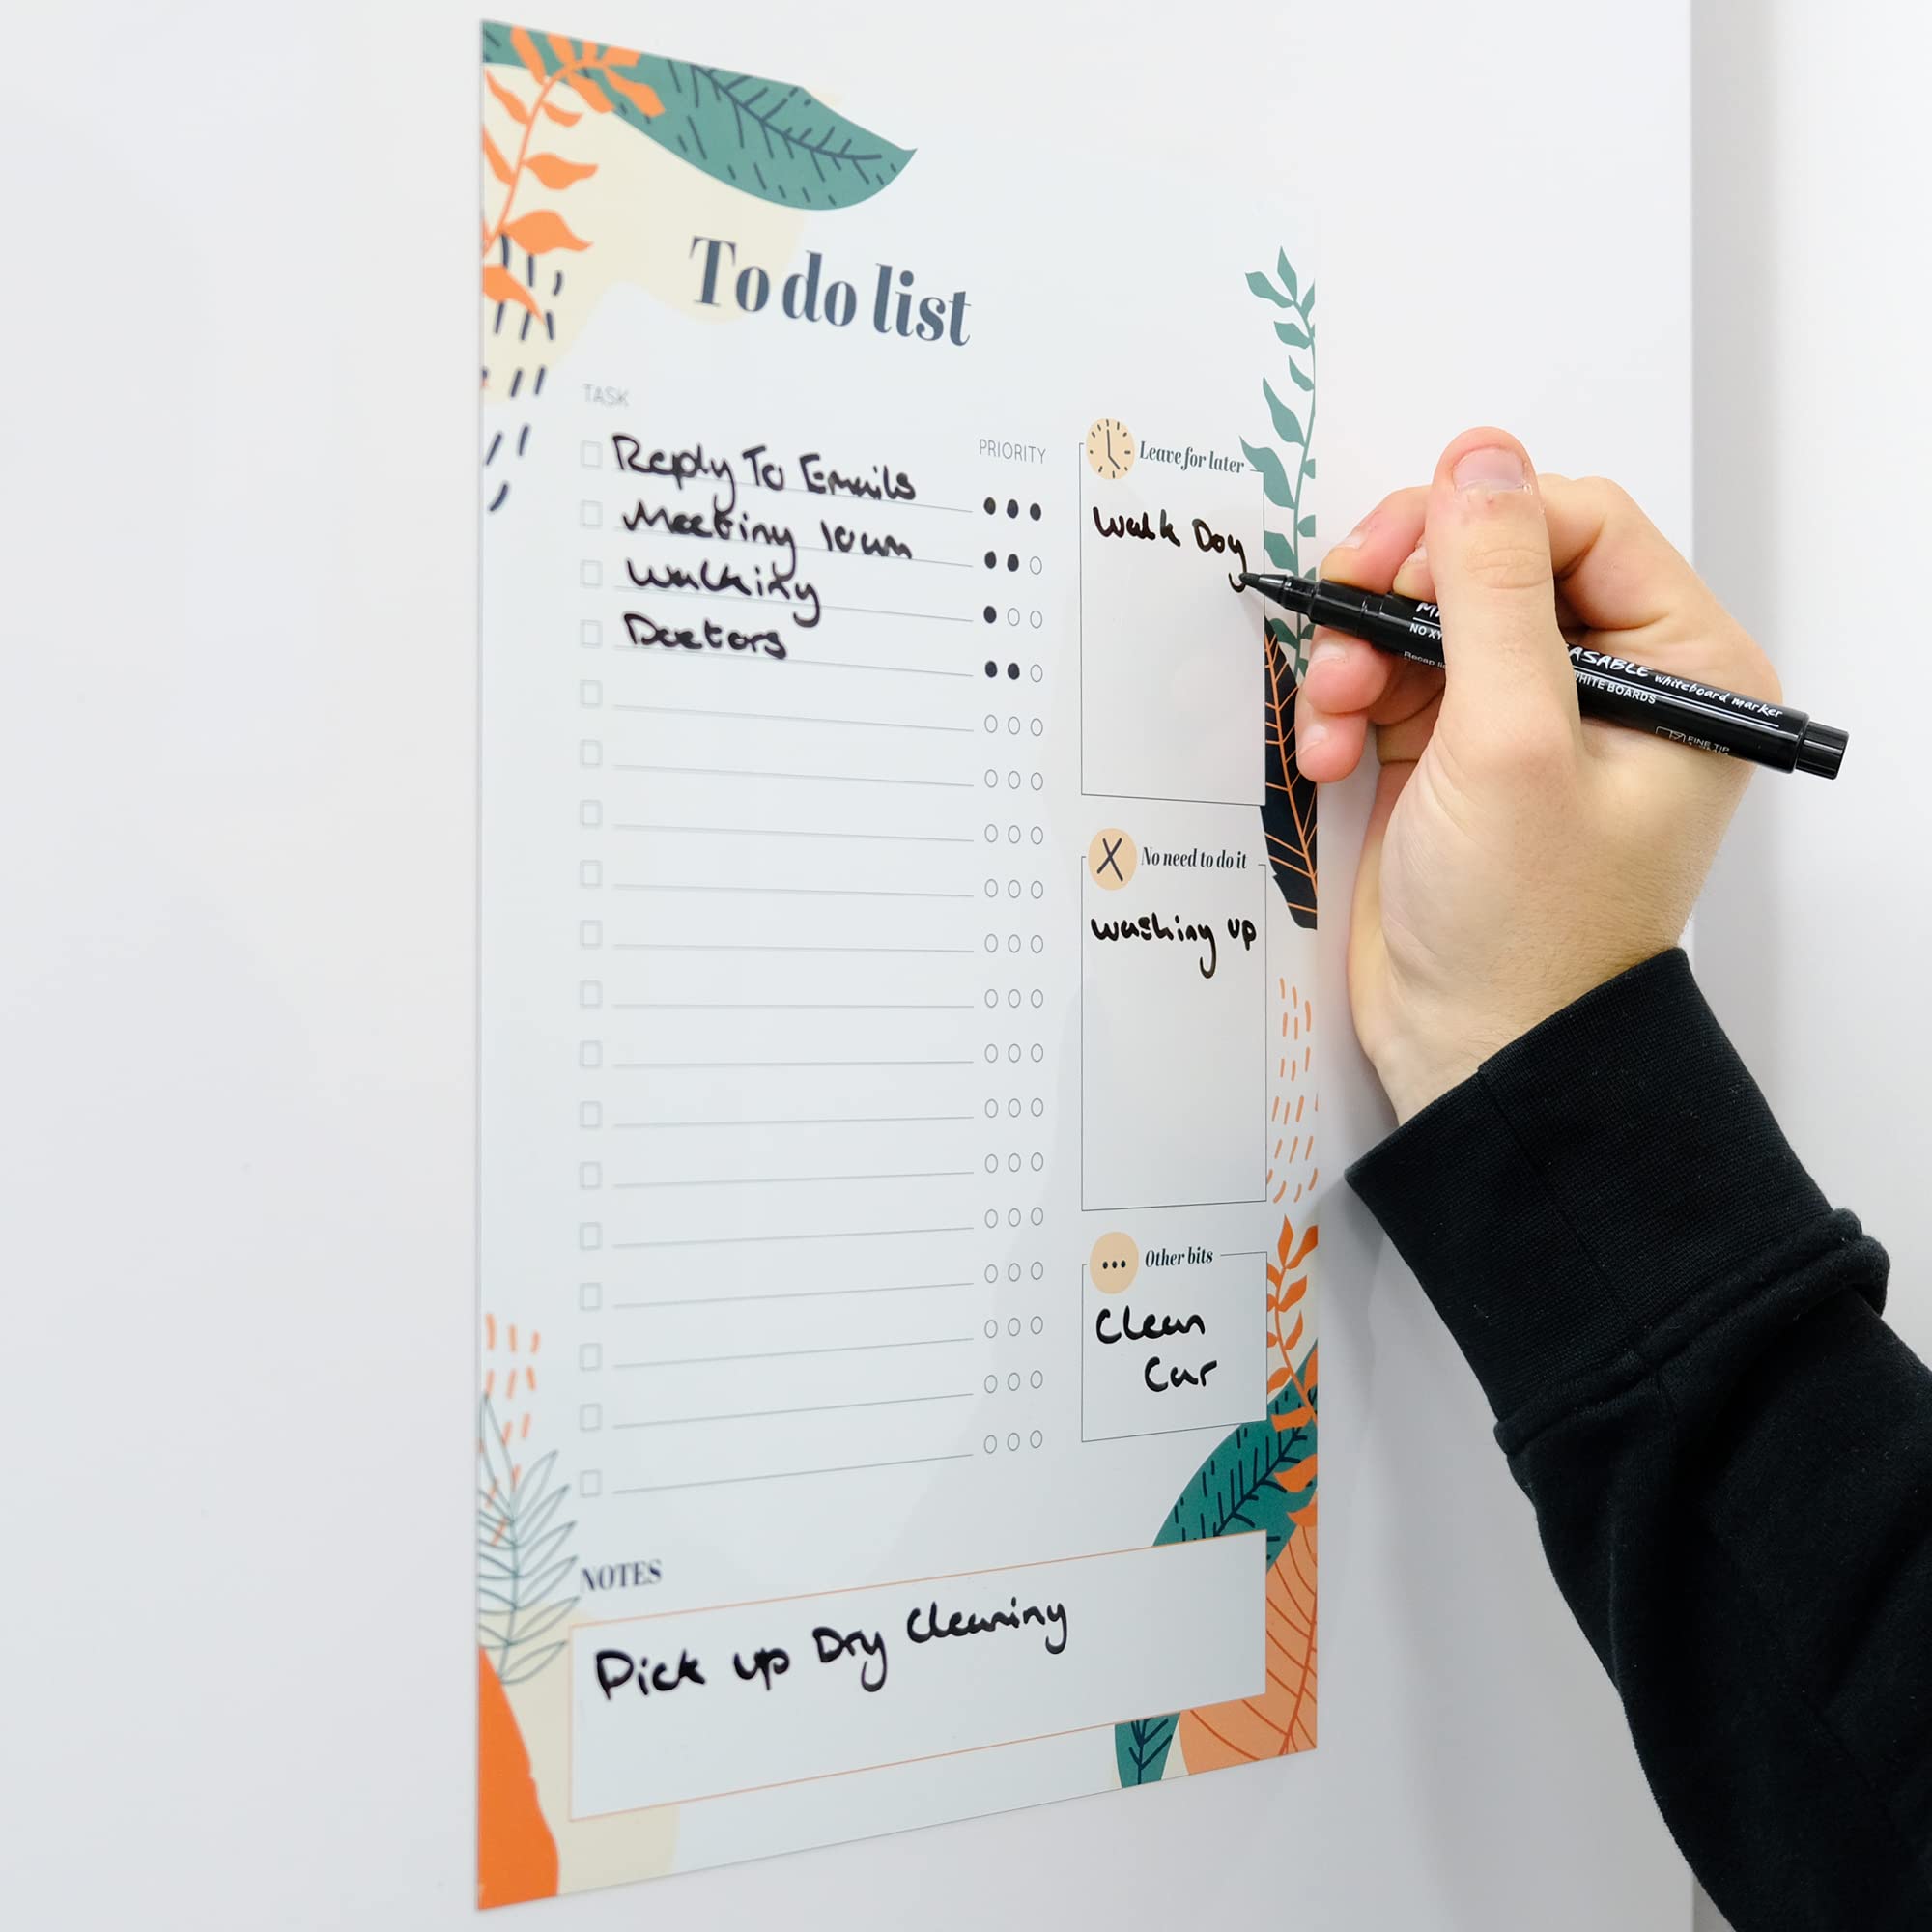 To do list
TASK
PRIORITY
Reply To Emails
Meeting 10am
Walking
Doctors
Leave for later
Walk Dog
No need to do it
washing up
Other bits
Clean
Car
NOTES
Pick up Dry Cleaning
ASABLE whiteboard marker
NO XY
HITE BOARDS
Recap
FINE TIP